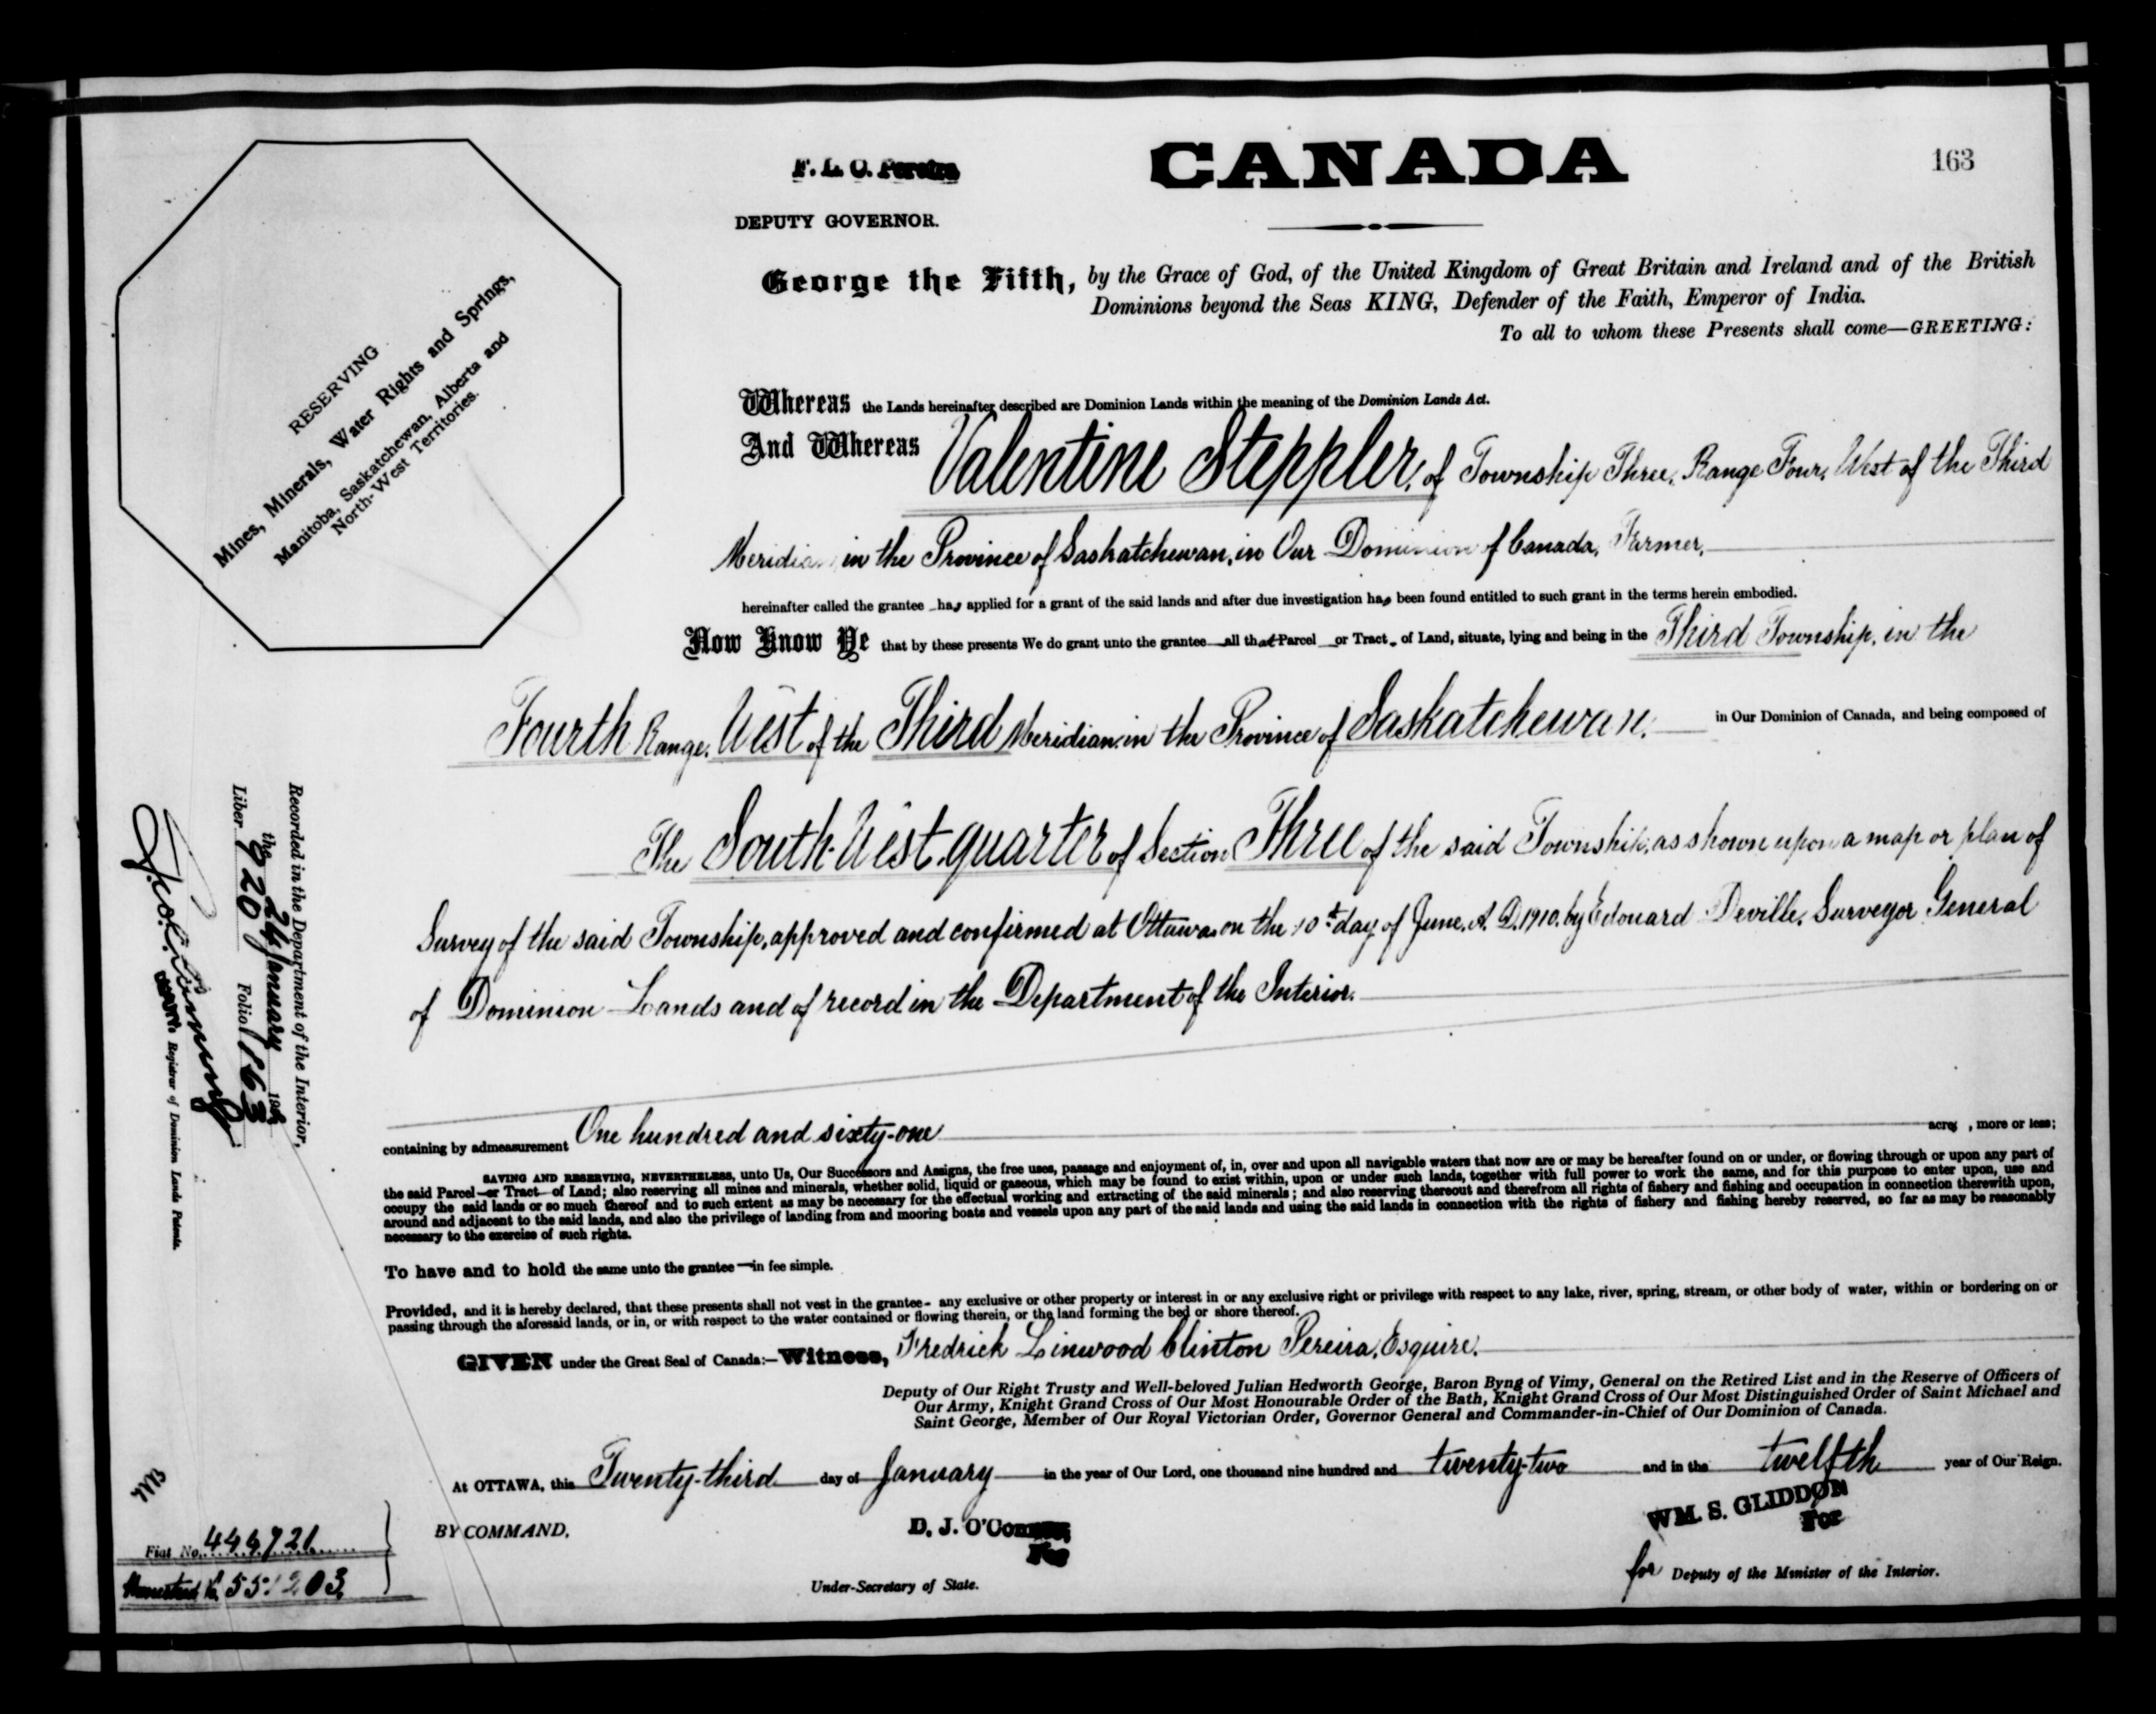 CANADA
163
F. L. C. Pereira
DEPUTY GOVERNOR.
George the Fifth, by the Grace of God, of the United Kingdom of Great Britain and Ireland and of the British
Dominions beyond the Seas KING, Defender of the Faith, Emperor of India.
To all to whom these Presents shall come—GREETING:
RESERVING
Mines, Minerals, Water Rights and Springs,
Manitoba, Saskatchewan, Alberta and
North-West Territories.
Whereas the Lands hereinafter described are Dominion Lands within the meaning of the Dominion Lands Act.
And Whereas Valentine Steppler, of Township Three, Range Four, West of the Third
Meridian in the Province of Saskatchewan, in Our Dominion of Canada, Farmer,
hereinafter called the grantee has applied for a grant of the said lands and after due investigation has been found entitled to such grant in the terms herein embodied.
Now Know Ye that by these presents We do grant unto the grantee all that Parcel or Tract of Land, situate, lying and being in the Third Township, in the
Fourth Range, West of the Third Meridian, in the Province of Saskatchewan, in Our Dominion of Canada, and being composed of
The South-West quarter of Section Three of the said Township, as shown upon a map or plan of
Survey of the said Township, approved and confirmed at Ottawa, on the 10th day of June, A. D. 1910, by Edouard Deville, Surveyor General
of Dominion Lands and of record in the Department of the Interior.
containing by admeasurement One hundred and sixty-one acres, more or less;
SAVING AND RESERVING, NEVERTHELESS, unto Us, Our Successors and Assigns, the free uses, passage and enjoyment of, in, over and upon all navigable waters that now are or may be hereafter found on or under, or flowing through or upon any part of
the said Parcel or Tract of Land; also reserving all mines and minerals, whether solid, liquid or gaseous, which may be found to exist within, upon or under such lands, together with full power to work the same, and for this purpose to enter upon, use and
occupy the said lands or so much thereof and to such extent as may be necessary for the effectual working and extracting of the said minerals; and also reserving thereout and therefrom all rights of fishery and fishing and occupation in connection therewith upon,
around and adjacent to the said lands, and also the privilege of landing from and mooring boats and vessels upon any part of the said lands and using the said lands in connection with the rights of fishery and fishing hereby reserved, so far as may be reasonably
necessary to the exercise of such rights.
To have and to hold the same unto the grantee in fee simple.
Provided, and it is hereby declared, that these presents shall not vest in the grantee any exclusive or other property or interest in or any exclusive right or privilege with respect to any lake, river, spring, stream, or other body of water, within or bordering on or
passing through the aforesaid lands, or in, or with respect to the water contained or flowing therein, or the land forming the bed or shore thereof.
GIVEN under the Great Seal of Canada:—Witness, Fredrick Linwood Clinton Pereira, Esquire.
Deputy of Our Right Trusty and Well-beloved Julian Hedworth George, Baron Byng of Vimy, General on the Retired List and in the Reserve of Officers of
Our Army, Knight Grand Cross of Our Most Honourable Order of the Bath, Knight Grand Cross of Our Most Distinguished Order of Saint Michael and
Saint George, Member of Our Royal Victorian Order, Governor General and Commander-in-Chief of Our Dominion of Canada.
At OTTAWA, this Twenty-third day of January in the year of Our Lord, one thousand nine hundred and twenty-two and in the twelfth year of Our Reign.
BY COMMAND,
D. J. O'Connor
For
Under-Secretary of State.
WM. S. GLIDDON
For
for Deputy of the Minister of the Interior.
Recorded in the Department of the Interior,
the 24 January 19
Liber 920 Folio 163
Registrar of Dominion Lands Patents.
Fiat No. 446721
Homestead No. 551203